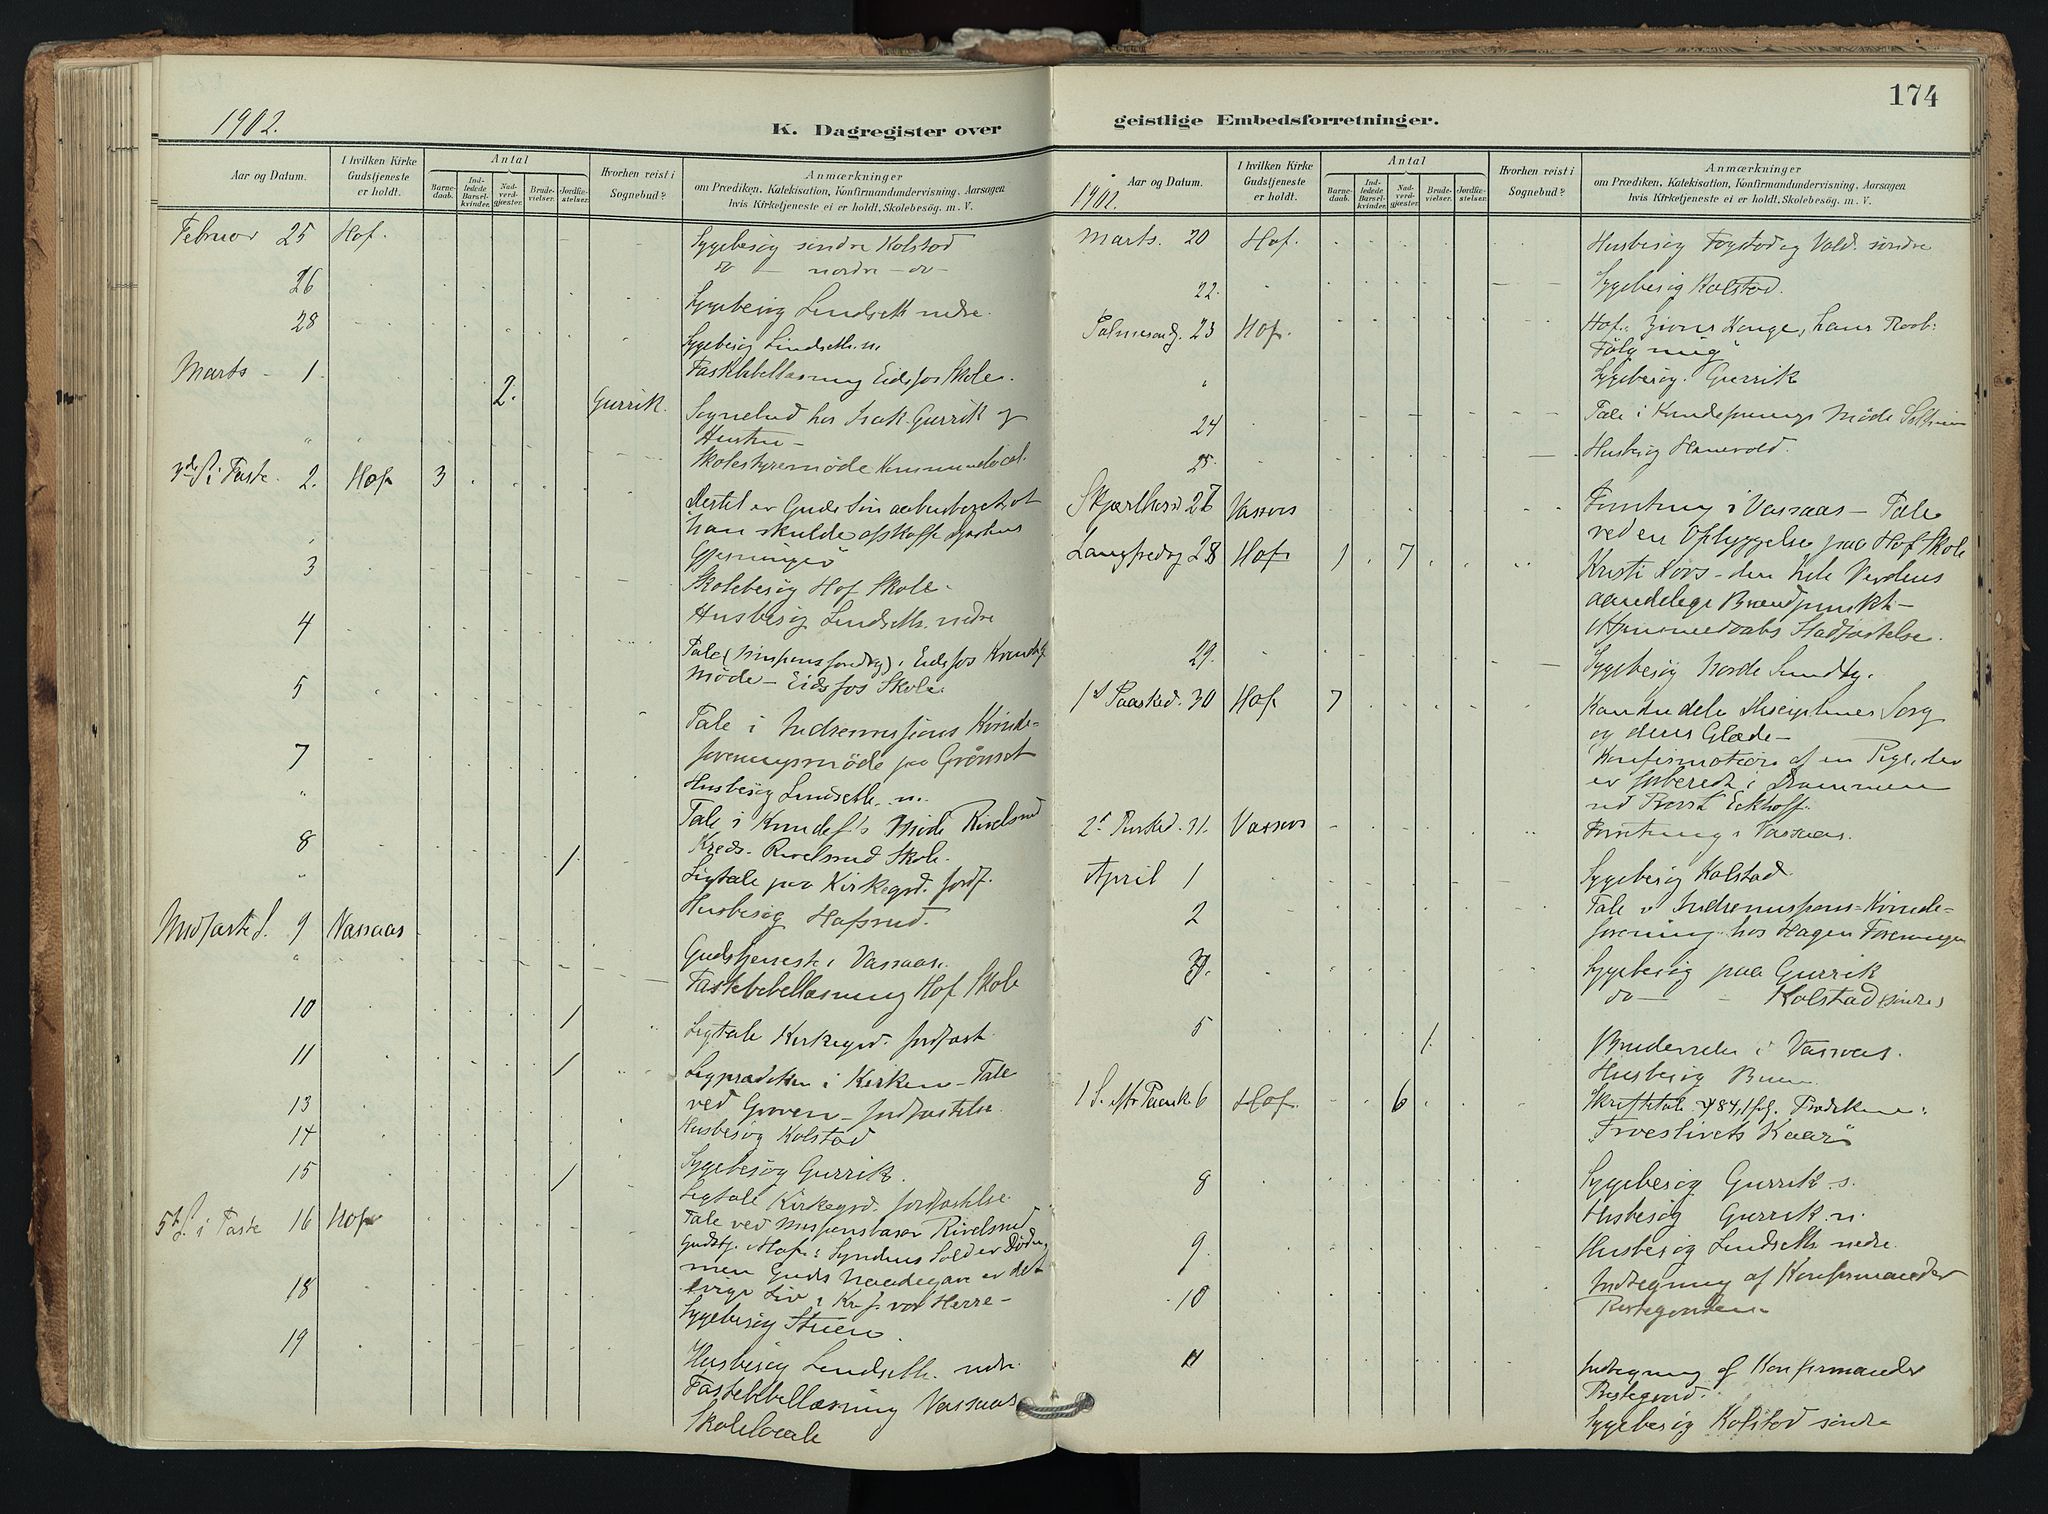 1902.
K. Dagregister over
Aar og Datum.
I hvilken Kirke Gudstjeneste er holdt.
Antal
Barne-daab.
Ind-ledede Barsel-kvinder.
Nad-verd-gjæster.
Brude-vielser.
Jordfæ-stelser.
Hvorhen reist i Sognebud?
Anmærkninger
om Prædiken, Katekisation, Konfirmandundervisning, Aarsagen
hvis Kirketjeneste ei er holdt, Skolebesøg. m. V.
Februar 25 Hof. Sygebesøg søndre Kolstad
do - nordre - do -
26 Sygebesøg Lindseth nedre.
28 Sygebesøg Lindseth. n.
Marts - 1 Fastebibellæsning Eidsfos Skole.
2. Gurrik. Sognebud hos Isak Gurrik og
Hustru -
Skolestyremøde Kommunelocal.
3de S. i Faste 2. Hof 3 Dertil er Guds Søn aabenbaret at
han skulde afskaffe Djævlens
Gjerninger
3 Skolebesøg Hof Skole.
Husbesøg Lindseth. nedre
4 Tale (Missionsforedrag) i Eidsfos Kvindef.
Møde - Eidsfos Skole.
5 Tale i Indremissions Kvinde-
foreningsmøde paa Grønset
7 Husbesøg Lindseth. n.
" Tale i Kvindef.'s Møde Rivelsrud
Kreds - Rivelsrud Skole.
8 1 Ligtale paa Kirkegrd. Jordf.
" Husbesøg Hafsrud.
Midfaste S. 9 Vassaas Gudstjeneste i Vassaas.
" Fastebibellæsning Hof Skole
10 1 Ligtale Kirkegrd. Jordfæst.
11 1 Ligprædiken i Kirken - Tale
ved Graven - Jordfæstelse.
13 Husbesøg Kolstad
14 Sygebesøg Gurrik.
15 1 Ligtale Kirkegrd. Jordfæstelse.
Tale ved Missionsbasar Rivelsrud
5te S. i Faste 16 Hof Gudstj. i Hof: Syndens Sold er Døden,
men Guds Naadegave er det
evige Liv i Kr. J. vor Herre -
18 Sygebesøg Stuen.
19 Husbesøg Lindseth. nedre.
Fastebibellæsning Vassaas
Skolelocale
174
geistlige Embedsforretninger.
1902.
Aar og Datum.
I hvilken Kirke Gudstjeneste er holdt.
Antal
Barne-daab.
Ind-ledede Barsel-kvinder.
Nad-verd-gjæster.
Brude-vielser.
Jordfæ-stelser.
Hvorhen reist i Sognebud?
Anmærkninger
om Prædiken, Katekisation, Konfirmandundervisning, Aarsagen
hvis Kirketjeneste ei er holdt, Skolebesøg. m. V.
Marts. 20 Hof. Husbesøg Fogstad og Vold. søndre
22. Sygebesøg Kolstad.
Palmesøndg. 23 Hof. Hof: Zions Konge, hans Raab:
Følg mig"
" Sygebesøg. Gurrik
24 Tale i Kvindeforenings Møde
25. Husbesøg Hanevold.
Skjærthorsd. 27 Vassaas Forretning i Vassaas - Tale
ved en Opbyggelse paa Hof Skole
Langfredag 28 Hof 1 7 Kristi Kors - den hele Verdens
aandelige Brændpunkt -
Stadfæstelse.
29. Sygebesøg Nordre Sundby.
1s Paasked. 30 Hof 7 Disciplenes Sorg
og deres Glæde -
Konfirmation af en Pige, der
er forberedt i Drammen
ved Provst Eckhoff.
2n Paasked. 31. Vassaas Forretning i Vassaas.
April 1 Sygebesøg Kolstad.
2 Tale i Indremissions-Kvinde-
forening hos Hagen Foreningen
3. Sygebesøg paa Gurrik
do - - Kolstad søndre
5 1. Brudevielse i Vassaas.
Husbesøg Buen
1 S. eftr Paaske 6 Hof. 6 Skriftetale ψ 84, 1 flg. Prædiken:
"Troeslivets Kaar"
8 Sygebesøg Gurrik s.
Husbesøg Gurrik. n.
9. Husbesøg Lindseth nedre.
10 Indtegning af Konfirmander
Prestegaarden.
11 Indtegning af Konfirmander
Prestegaard.
Sygebesøg Kolstad søndre